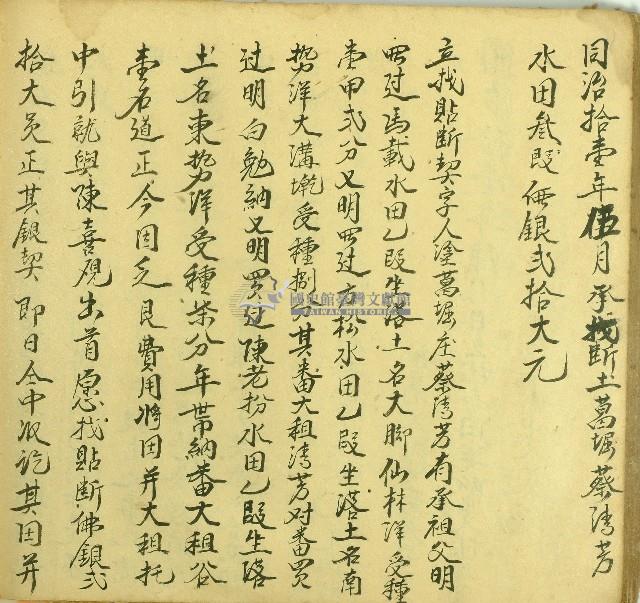 同治拾壹年伍月承找斷土葛堀蔡清芳
水田叁段価銀弍拾大元
立找貼断契字人塗葛堀庄蔡清芳有承祖父明
買过馮載水田乙段坐落土名大脚仙林洋受種
壹甲弍分又明買过庄松水田乙段坐落土名南
势洋大溝墘受種捌 其番大租清芳对番買
过明白勉納又明買过陳老扮水田乙段坐落
土名東势洋受種柒分年帶納番大租谷
壹石道正今因乏艮費用将田并大租托
中引就與陳喜覌出首愿找貼断佛銀弍
拾大员正其銀契即日仝中收訖其田并
國史館臺灣文獻館
TAIWAN HISTORICA